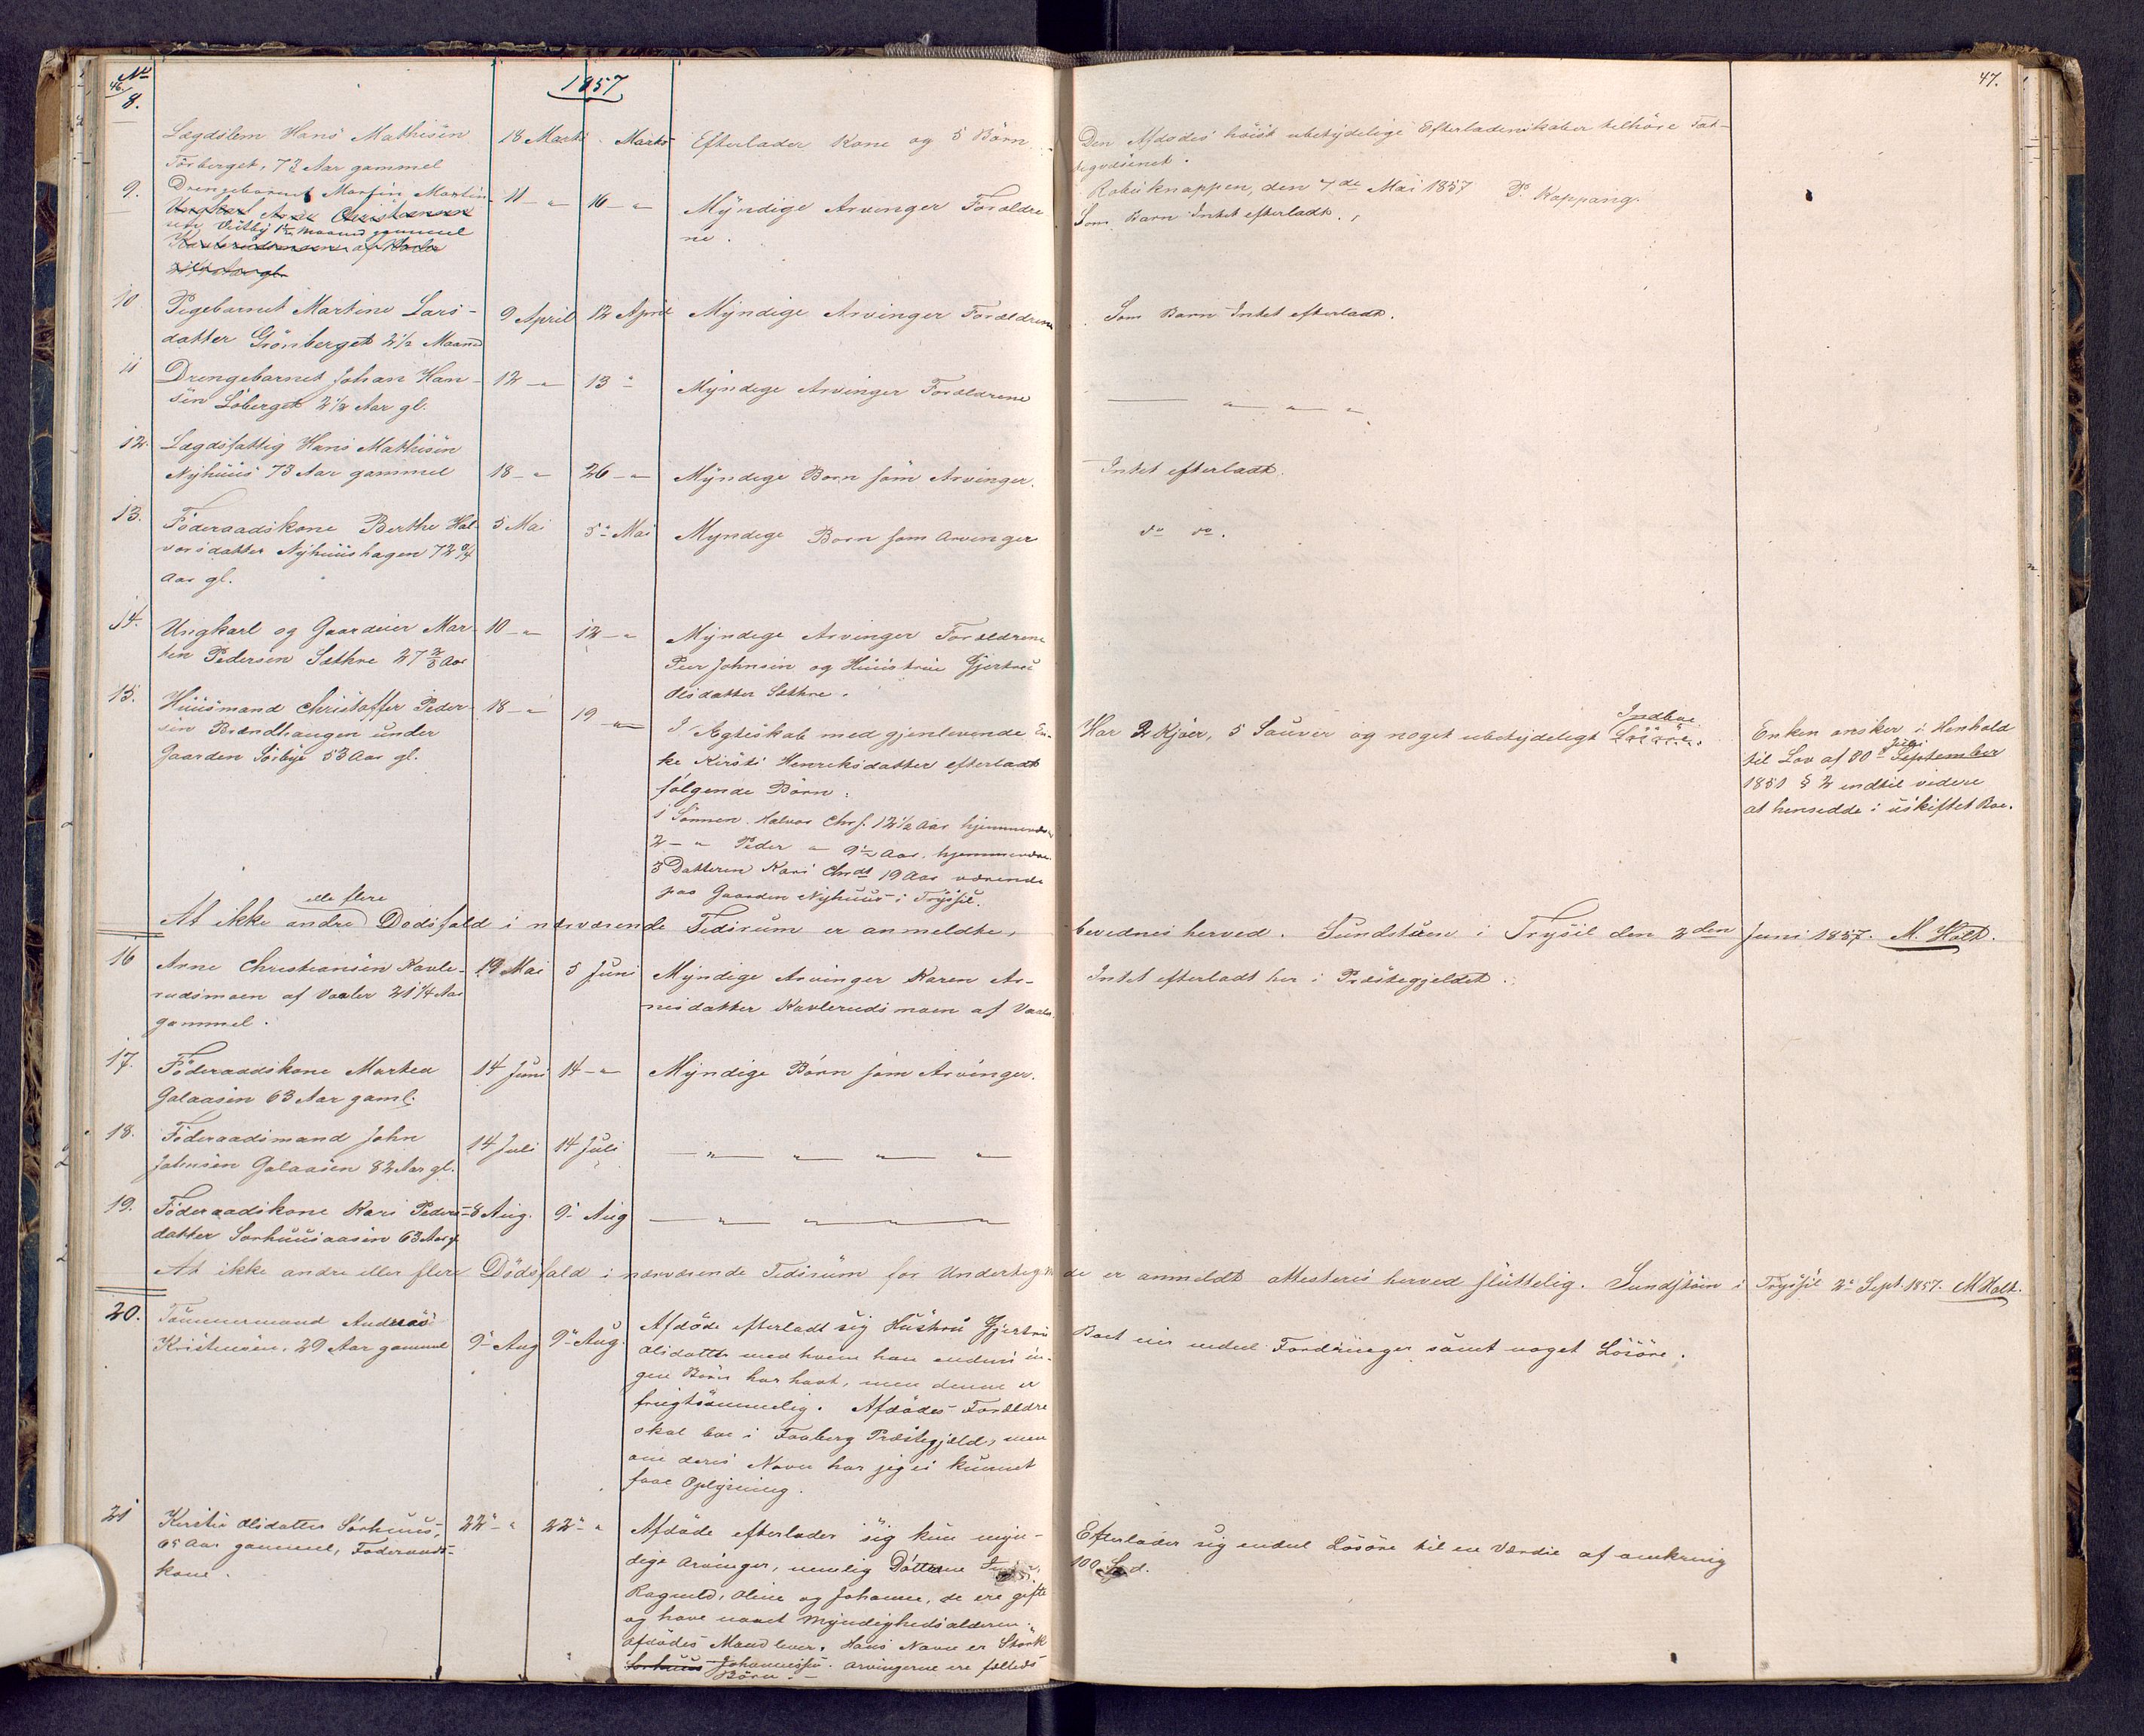 46. No
1857
47.
8.
Lægdslem Hans Mathisen
Törberget, 73 Aar gammel
18 Marts
Marts
Efterlader Kone og 5 Börn
Den Afdödes höist ubetydelige Efterladenskaber tilhöre Fat-
tigvæsenet.
den 7de Mai 1857 P. Koppang.
9.
Drengebarnet Martin Martin-
Ungkarl Arne Christiansen
sen Vestby 1 1/2 Maaned gammel
af Vaaler
11 - "
16 - "
Myndige Arvinger Forældre
ne.
Som Barn Intet efterladt.
10
Pigebarnet Martine Lars-
datter Grönberget 2 1/2 Maaned
9 April
12 April
Myndige Arvinger Forældrene
Som Barn Intet efterladt.
11
Drengebarnet Johan Han-
sen Löberget 2 1/2 Aar gl.
12 - "
13 "
Myndige Arvinger Forældrene
— " " "
12.
Lægdsfattig Hans Mathisen
Nyhuus 73 Aar gammel
18 - "
26 - "
Myndige Börn som Arvinger.
Intet efterladt.
13.
Föderaadskone Berthe Hal-
vorsdatter Nyhuushagen 72 3/4
Aar gl.
5 Mai
5 Mai
Myndige Börn som Arvinger
do do.
14.
Ungkarl og Gaardeier Mar-
tin Pedersen Sæthre 27 2/3 Aar
10 - "
12 - "
Myndige Arvinger Forældrene
Peer Johnsen og Huustrue Gjertru
Olsdatter Sæthre.
15.
Huusmand Christoffer Peder-
sen Brændhaugen under
Gaarden Sörbye 53 Aar gl.
18 - "
19 - "
I Ægteskab med gjenlevende En-
ke Kirsti Henriksdatter efterladt
følgende Börn:
1 Sönnen Halvor Chrs. 12 1/2 Aar hjemmeværende
2 - " Peder " 9 1/2 Aar. hjemmeværende
3 Datteren Kari Chrdt 19 Aar værende
paa Gaarden Nyhuus i Trysil.
Har 2 Kjöer, 5 Sauver og noget ubetydeligt Indboe
Lösöre.
Enken önsker i Henhold
til Lov af 30 Juli September
1851 § 2 indtil videre
at hensidde i uskiftet Boe.
eller flere
At ikke andre Dödsfald i nærværende Tidsrum er anmeldte, bevidnes herved. Sundstuen i Trysil den 2den Juni 1857. M. Holt.
16
Arne Christiansen Kavle-
rudsmoen af Vaaler 21 1/4 Aar
gammel.
19 Mai
5 Juni
Myndige Arvinger Karen Ar-
nesdatter Kavlerudsmoen af Vaaler.
Intet efterladt her i Præstegjeldet.
17.
Föderaadskone Marthea
Galaasen 63 Aar gaml.
14 Juni
14 - "
Myndige Börn som Arvinger.
18.
Föderaadsmand John
Johnsen Galaasen 82 Aar gl.
14 Juli
14 Juli
— " — " — " — "
19.
Föderaadskone Kari Peders-
datter Sorhuusaasen 63 Aar gl
8 Aug.
9 Aug
— " — " — " — "
At ikke andre eller flere Dödsfald i nærværende Tidsrum for Undertegnede er anmeldt attesteres herved sluttelig. Sundstuen i Trysil 2 Sept. 1857. M Holt.
20.
Tömmermand Andreas
Kristensen, 29 Aar gammel
9 Aug
9 Aug.
Afdöde efterladt sig Hustru Gjertru
Olsdatter med hvem han endnu in-
gen Börn har havt, men denne er
frugtsommelig. Afdödes Forældre
skal boe i Faaberg Præstegjæld, men
om deres Navn har jeg ei kunnet
faae Oplysning.
Boet eier endeel Fordringer samt noget Lösöre.
21
Kirstie Olsdatter Sörhuus,
65 Aar gammel, Föderaads-
kone.
22 - "
22 - "
Afdöde efterlader sig kun myn-
dige Arvinger, nemlig Döttrene
Ragnild, Oline og Johanne, de ere gifte
og have naaet Myndighedsalderen.
Afdödes Mand lever. Hans Navn er Stork
Sorhuus Johannessen. Arvingerne ere fælleds
Börn.
Efterlader sig endeel Lösöre til en Værdie af omkring
100 Spd.